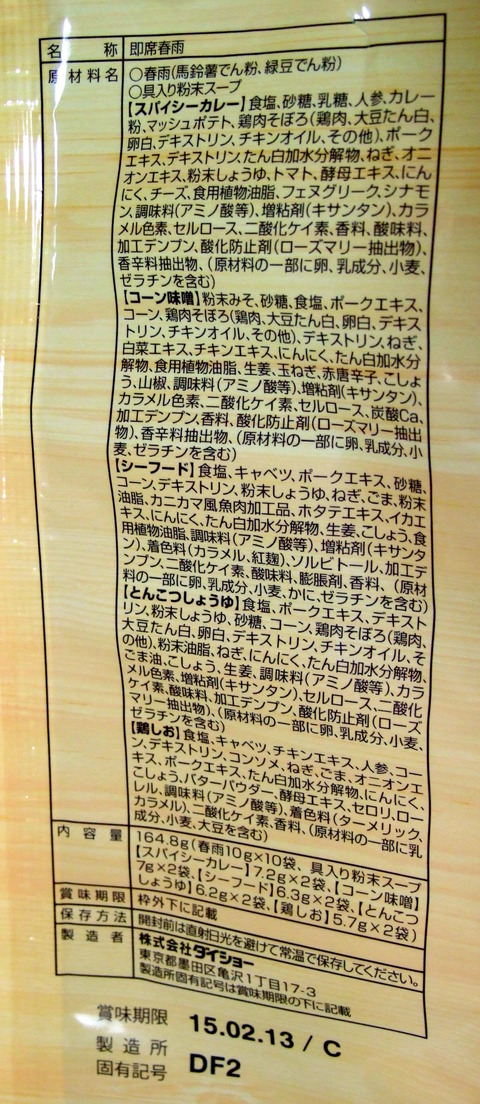 名称 即席春雨
原材料名 ○春雨(馬鈴薯でん粉、緑豆でん粉)
○具入り粉末スープ
【スパイシーカレー】食塩、砂糖、乳糖、人参、カレー
粉、マッシュポテト、鶏肉そぼろ(鶏肉、大豆たん白、
卵白、デキストリン、チキンオイル、その他)、ポーク
エキス、デキストリン、たん白加水分解物、ねぎ、オニ
オンエキス、粉末しょうゆ、トマト、酵母エキス、にん
にく、チーズ、食用植物油脂、フェヌグリーク、シナモ
ン、調味料(アミノ酸等)、増粘剤(キサンタン)、カラ
メル色素、セルロース、二酸化ケイ素、香料、酸味料、
加工デンプン、酸化防止剤(ローズマリー抽出物)、
香辛料抽出物、(原材料の一部に卵、乳成分、小麦、
ゼラチンを含む)
【コーン味噌】粉末みそ、砂糖、食塩、ポークエキス、
コーン、鶏肉そぼろ(鶏肉、大豆たん白、卵白、デキス
トリン、チキンオイル、その他)、デキストリン、ねぎ、
白菜エキス、チキンエキス、にんにく、たん白加水分
解物、食用植物油脂、生姜、玉ねぎ、赤唐辛子、こしょ
う、山椒、調味料(アミノ酸等)、増粘剤(キサンタン)、
カラメル色素、二酸化ケイ素、セルロース、炭酸Ca、
加工デンプン、香料、酸化防止剤(ローズマリー抽出
物)、香辛料抽出物、(原材料の一部に卵、乳成分、小
麦、ゼラチンを含む)
【シーフード】食塩、キャベツ、ポークエキス、砂糖、
コーン、デキストリン、粉末しょうゆ、ねぎ、ごま、粉末
油脂、カニカマ風魚肉加工品、ホタテエキス、イカエ
キス、にんにく、たん白加水分解物、生姜、こしょう、食
用植物油脂、調味料(アミノ酸等)、増粘剤(キサンタ
ン)、着色料(カラメル、紅麹)、ソルビトール、加工デ
ンプン、二酸化ケイ素、酸味料、膨脹剤、香料、(原材
料の一部に卵、乳成分、小麦、かに、ゼラチンを含む)
【とんこつしょうゆ】食塩、ポークエキス、デキスト
リン、粉末しょうゆ、砂糖、コーン、鶏肉そぼろ(鶏肉、
大豆たん白、卵白、デキストリン、チキンオイル、そ
の他)、粉末油脂、ねぎ、にんにく、たん白加水分解物、
ごま油、こしょう、生姜、調味料(アミノ酸等)、カラ
メル色素、増粘剤(キサンタン)、セルロース、二酸化
ケイ素、酸味料、加工デンプン、酸化防止剤(ローズ
マリー抽出物)、(原材料の一部に卵、乳成分、小麦、
ゼラチンを含む)
【鶏しお】食塩、キャベツ、チキンエキス、人参、コー
ン、デキストリン、コンソメ、ねぎ、ごま、オニオンエ
キス、ポークエキス、たん白加水分解物、にんにく、
こしょう、バターパウダー、酵母エキス、セロリ、ロー
レル、調味料(アミノ酸等)、着色料(ターメリック、
カラメル)、二酸化ケイ素、香料、(原材料の一部に乳
成分、小麦、大豆を含む)
内容量 164.8g(春雨10g×10袋、具入り粉末スープ
【スパイシーカレー】7.2g×2袋、【コーン味噌】
7g×2袋、【シーフード】6.3g×2袋、【とんこつ
しょうゆ】6.2g×2袋、【鶏しお】5.7g×2袋)
賞味期限 枠外下に記載
保存方法 開封前は直射日光を避けて常温で保存してください。
製造者 株式会社ダイショー
東京都墨田区亀沢1丁目17-3
製造所固有記号は賞味期限の下に記載
賞味期限 15.02.13 / C
製造所
固有記号 DF2